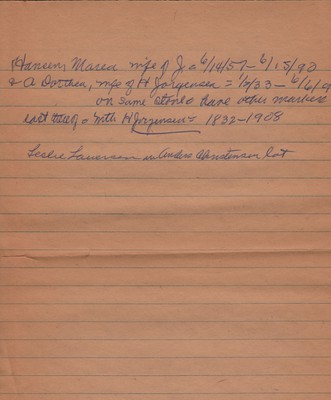 Hansen, Maria wife of J. = 6/19/57 - 6/15/90
& A Dorthea, wife of H Jorgensen = 1/7/33 - 6/6/
on same stone have other markers
east of = with H Jorgensen = 1832-1908
Leslie Laursen in Anders Christensen lot